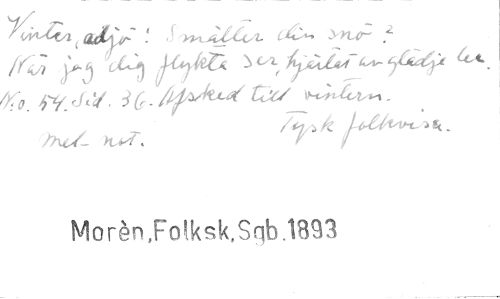 Vinter, adjö! Smälter din snö?
När jag dig flykta ser, hjärtat av glädje ler.
N:o. 54. Sid. 36. Afsked till vintern.
Mel. not. Tysk folkvisa.
Morèn,Folksk,Sgb.1893